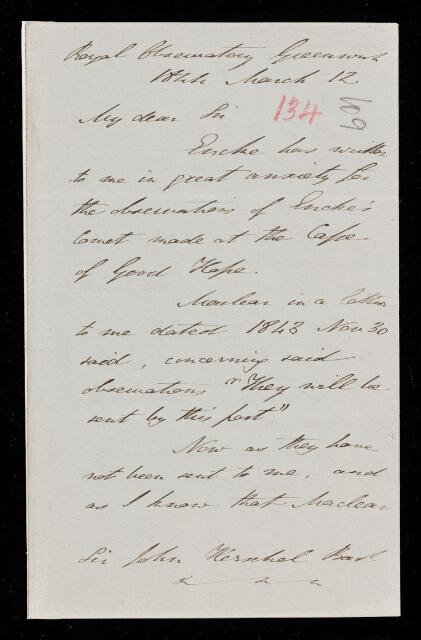 Royal Observatory Greenwich
1844 March 12
134
109
My dear Sir
Encke has written
to me in great anxiety for
the observations of Encke's
Comet made at the Cape
of Good Hope.
Maclear in a letter
to me dated 1843 Nov 30
said, concerning said
observations "They will be
sent by this post."
Now as they have
not been sent to me, and
as I know that Maclear
Sir John Herschel Bart